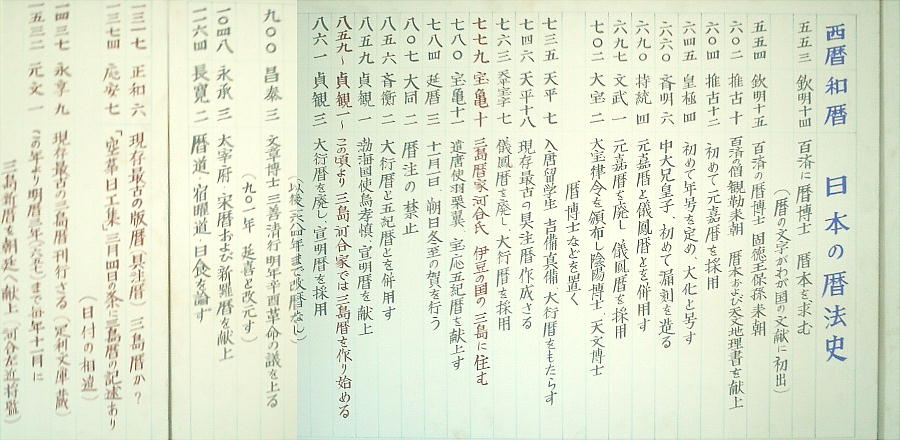 西暦 和暦 日本の暦法史
五五三 欽明十四 百済に暦博士 暦本を求む
(暦の文字がわが国の文献に初出)
五五四 欽明十五 百済の暦博士 固徳王保孫来朝
六〇二 推古十 百済の僧観勒来朝 暦本および天文地理書を献上
六〇四 推古十二 初めて元嘉暦を採用
六四五 皇極四 初めて年号を定め、大化と号す
六六〇 斉明六 中大兄皇子、初めて漏刻を造る
六九〇 持統四 元嘉暦と儀鳳暦とを併用す
六九七 文武一 元嘉暦を廃し 儀鳳暦を採用
七〇二 大宝二 大宝律令を領布し陰陽博士、天文博士
暦博士などを置く
七三五 天平七 入唐留学生 吉備真備 大衍暦をもたらす
七四六 天平十八 現存最古の具注暦作成さる
七六三 天平宝字七 儀鳳暦を廃し、大衍暦を採用
七七九 宝亀十 三島暦家河合氏 伊豆の国の三島に住む
七八〇 宝亀十一 遣唐使羽栗翼 宝応五紀暦を献上す
七八四 延暦三 十一月一日 朔日冬至の賀を行う
八〇七 大同二 暦注の禁止
八五六 斉衡二 大衍暦と五紀暦とを併用す
八五九 貞観一 渤海国使烏孝慎、宣明暦を献上
八五九〜 貞観一〜 この頃より三島、河合家では三島暦を作り始める
八六一 貞観三 大衍暦を廃し、宣明暦を採用
(以後一六八四年まで改暦なし)
九〇〇 昌泰三 文章博士三善清行明年辛酉革命の議を上る
(九〇一年 延喜と改元す)
一〇四八 永承三 太宰府・宋暦および新羅暦を献上
一一六四 長寛二 暦道・宿曜道、日食を論ず
一三一七 正和六 現存最古の版暦(具注暦) 三島暦か?
一三七四 応安七 「空華日工集」三月四日の条に三島暦の記述あり
(日付の相違)
一四三七 永享九 現存最古の三島暦刊行さる (足利文庫蔵)
一五三二 元文一 この年より明暦三年(一六五七)まで毎年十一月に
三島新暦を朝廷へ献上(河合左近将監)